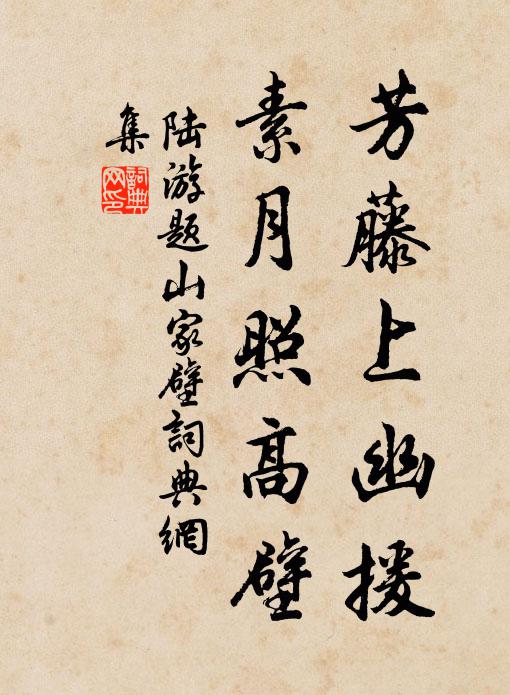 芳藤上幽援
素月照高壁
陆游题山家壁詞典網
集
詞典网印